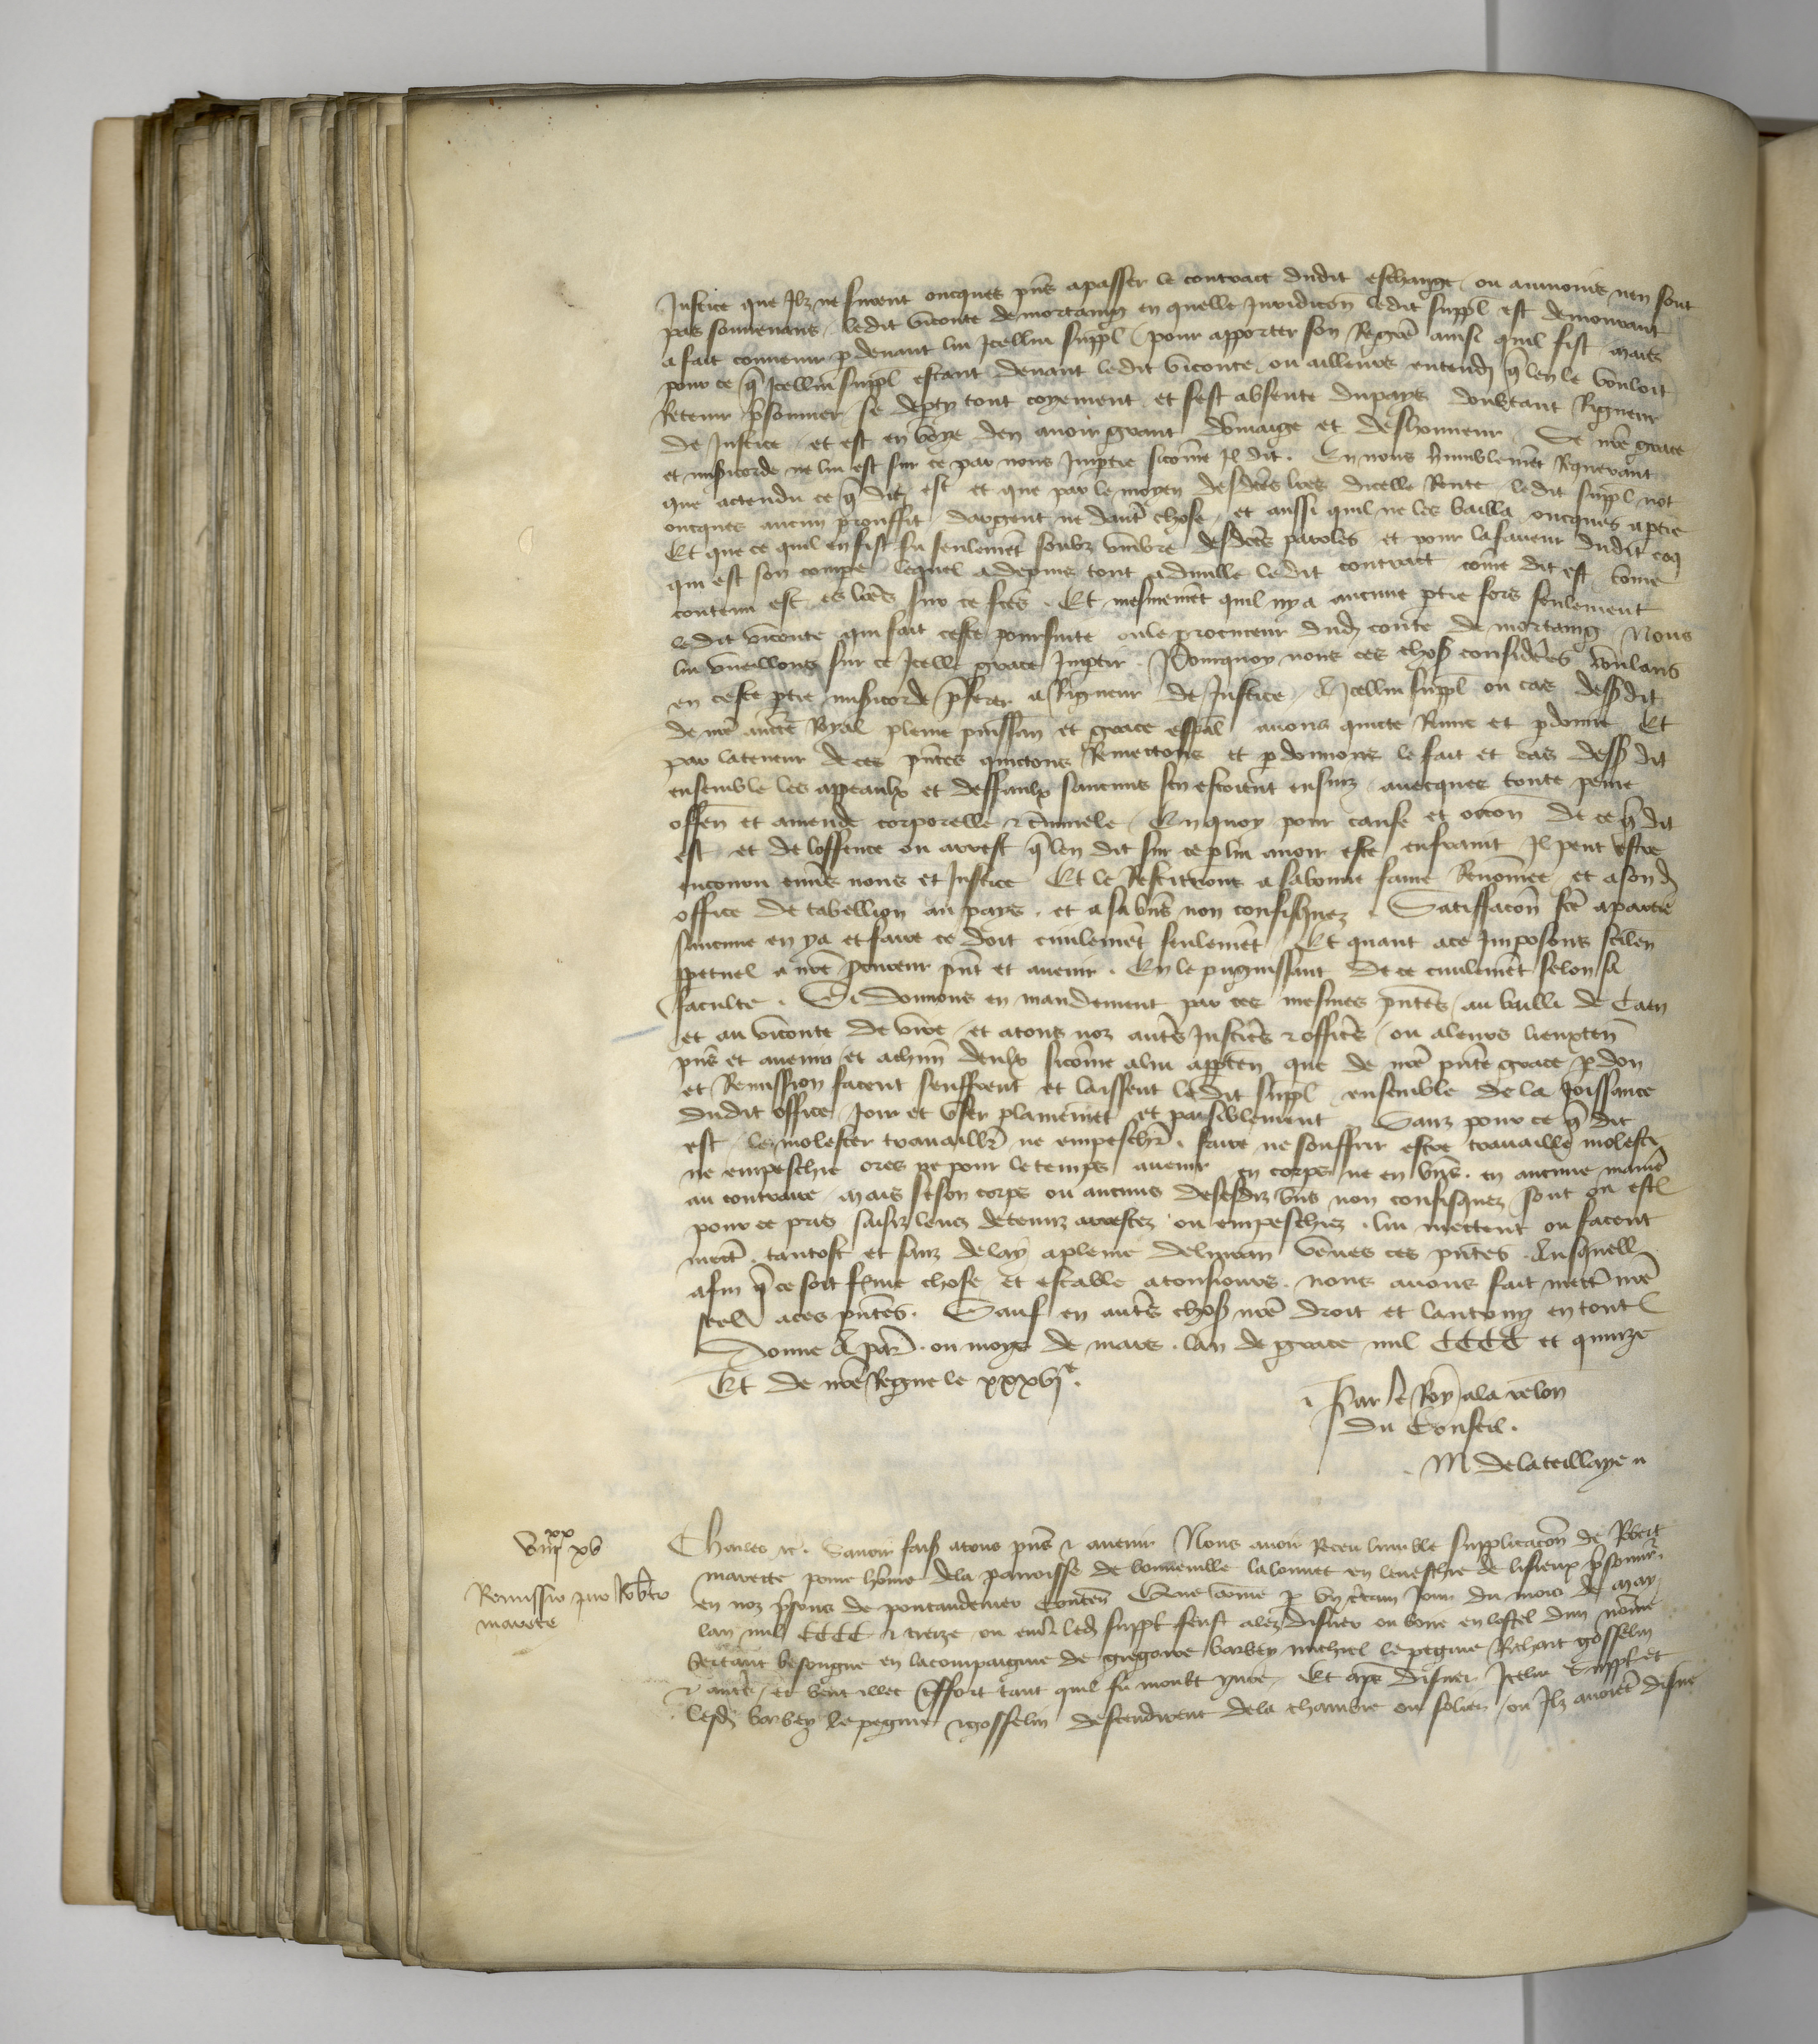 Justice que Ilz ne furent oncques pns apasser le contract dudit eschange ou aumoins nen sont
pas souvenans ledit viconte de mortaing en quelle Juridicon ledit suppl est demourant
a fait convenir p devant lui Icellui suppl pour apporter son Regre ainsi quil fist mais
pour ce q Icellui suppl estant devant ledit viconte ou ailleurs entendi q len le vouloit
Retenir prisonnier se depty tout coyement et sest absente dupays doubtant Rigueur
de Justice et est en voye den avoir grant domaige et deshonneur Se nre grace
et misicorde ne lui est sur ce par nous Imptie sicome Il dit. En nous humblemet Requerant
que actendu ce q dit est et que par le moyen desdces lres dicelle Rente ledit suppl not
oncques aucun prouffit dargent ne dautre chose et aussi quil ne les bailla oncques aptie
Et que ce quil en fist fu seulemet soubz umbre desdces paroles et pour lafaveur dudit coq
qui est son compe lequel adepuis tout adnulle ledit contract come dit est come
contenu est es lres sur ce fces. Et mesmemet quil ny a aucune ptie fors seulement
ledit viconte qui fait ceste poursuite oule procureur dud conte de mortaing Nous
lui vueillons sur ce Icelle grace Imptir. Pourquoy nous ces chos considerees voulans
en ceste ptie misicorde pferer a Rigueur de Justice A Icellui suppl ou cas dessdit
de nre aucte Royal plaine puissan et grace espal avons quicte Remis et pdonne Et
par lateneur de ces pntes quictons Remectons et pdonnons le fait et cas dess dit
ensemble les appeaulx et deffaulx saucuns sen estoient ensuiz avecques toute peine
offen et amende corporelle & criminele En quoy pour cause et occon de ce q dit
est et de loffence ou arrest q len dit sur ce p lui avoir este enfraint Il peut estre
encouru envs nous et Justice Et le Restituons a sabonne fame Renomee et ason d
office de tabellion au pays. et a ses bns non confisquez. Satiffacon fce apartie
saucune en ya et faire ce doit civilemet seulemet Et quant ace Imposons silen
ppetuel a nre procureur pnt et avenir. En le pugnissant de ce civilemet selon sa
faculte. Si donnons en mandement par ces mesmes pntes au bailli de Caen
et au viconte de vire et atous noz autes Justices & offices ou aleurs lieuxten
pns et avenir et achun deulx sicome alui apptien que de nre pnte grace pdon
et Remission facent seuffrent et laissent ledit suppl ensemble de la Joissance
dudit office Joir et user plainemet et paisiblement Sanz pour ce q dit
est le molester travaillr ne empeschr. faire ne souffrir estre travaille moleste
ne empeschie ores ne pour letemps avenir en corps ne en bns. en aucune manie
au contraire mais se son corps ou aucuns desesdiz bns non confisquez sont ou estl
pour ce pris saisiz levez detenuz arrestez ou empeschiez. lui mettent ou facent
mectre. tantost et sanz delay apleine delivran veues ces pntes. Ausquell
afin q ce soit ferme chose et estable atousjours. nous avons fait mectre nre
seel aces pntes. Sauf en autes chos nre droit et lautruy en tout
Donne A par. ou moys de mars. lan de grace mil CCCC et quinze
Et de nre Regne le xxxvie.
Par le Roy ala relon
du Conseil.
M delateillaye
viiixx xv
Remissio pro Robto
marete
Charles &c. Savoir fais atous pns & avenir Nous avoir Receu lumble supplicacon de Robert
marette poure home dela parroisse de bonneville lalouvet en leveschie de lisieux prisonnir
en noz prisons de pontaudemer Conten Que come p un ctain Jour du mois de may
lan mil CCCC & treize ou envr led suppl feust alez disner ou boire en lostel dun nome
bertaut besongne en lacompaignie de gregoire barbey michiel le pegnie Richart gosselin
& autes. et beut illec Effort tant quil fu moult yvre Et aps disner Icelui Suppl et
lesd barbey le pegnie & gosselin descendirent dela chambre ou solier ou Ilz avoiet disne